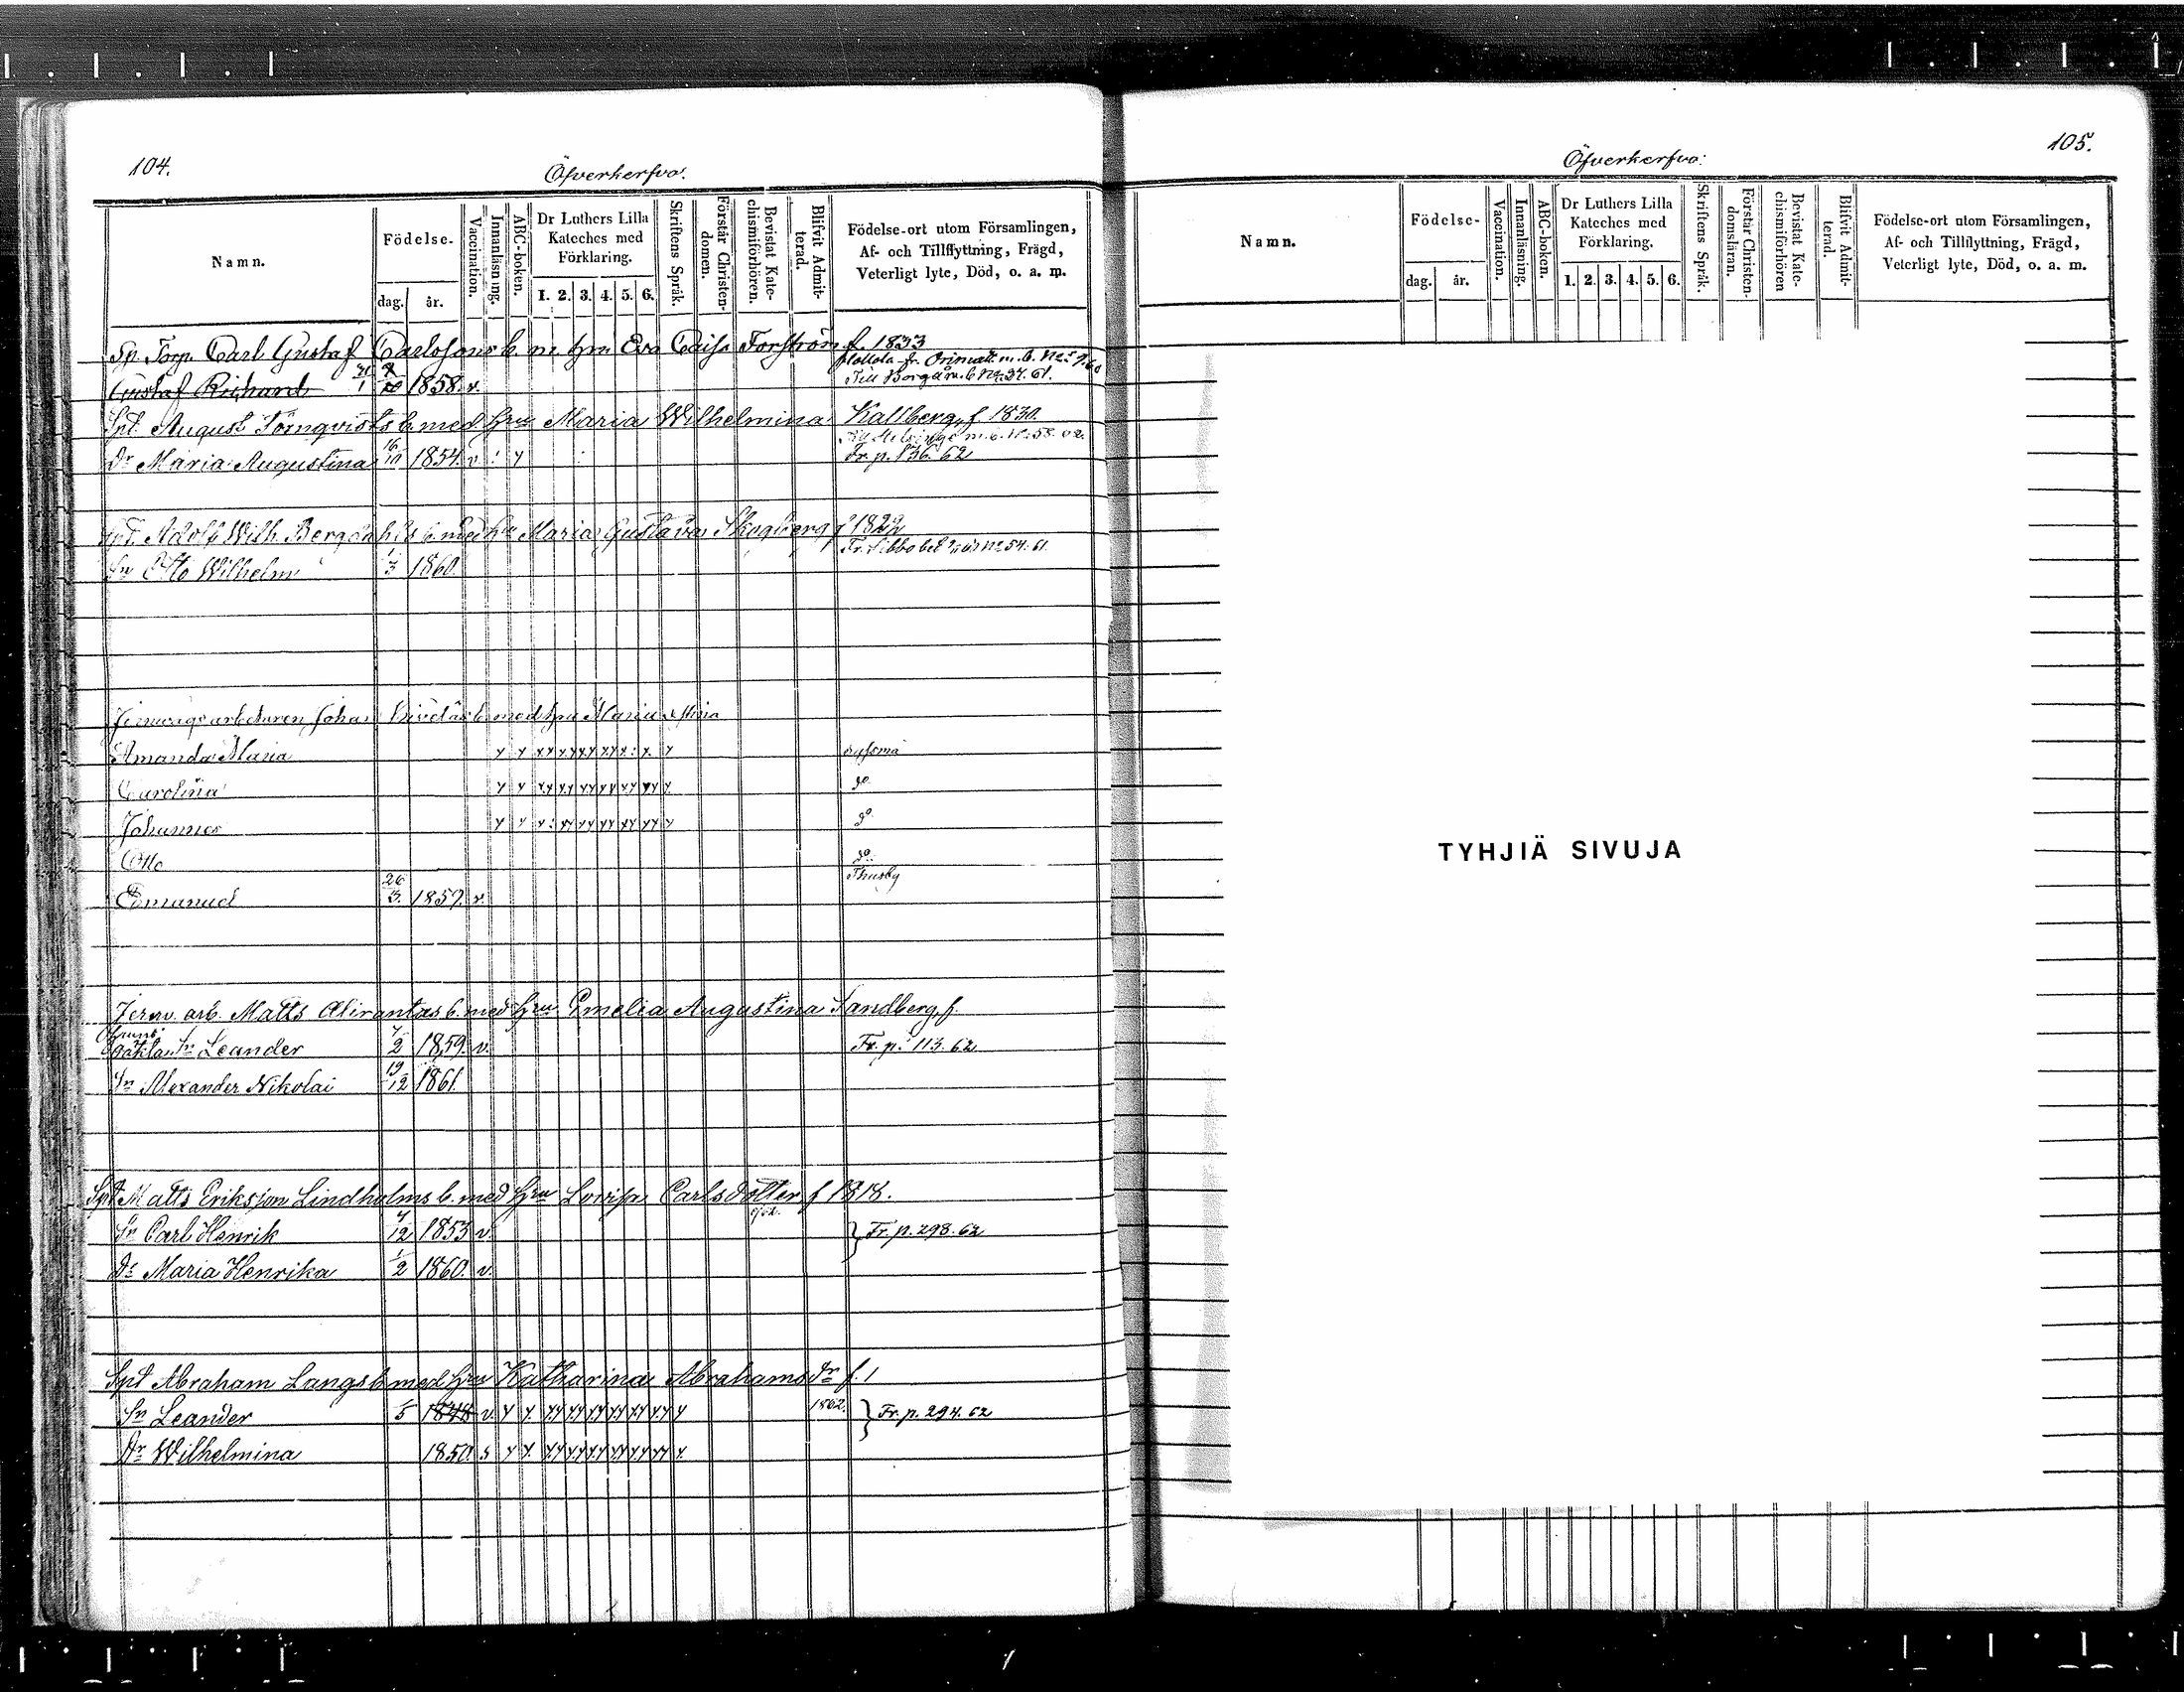 104.
Öfverkerfvo.
Namn.
Födelse-
dag.
år.
Vaccination.
Innanläsning.
ABC-boken.
Dr Luthers Lilla
Kateches med
Förklaring.
1. 2. 3. 4. 5. 6.
Skriftens Språk.
Förstår Christen-
domen.
Bevistat Kate-
chismiförhören.
Blifvit Admit-
terad.
Födelse-ort utom Församlingen,
Af- och Tillflyttning, Frägd,
Veterligt lyte, Död, o. a. m.
Sp. Torp. Carl Gustaf Carlssons b. m. hru Eva Caisa Forström f. 1833
Hollola fr. Orimat. m. b. No
Gustaf Richard 1858. v. Till Borgå m. b. No 34. 61.
Spt. August Törnqvists b. med hru Maria Wilhelmina Kallberg, f 1830.
Till Helsinge m. b. No 58. 62.
Dr Maria Augustina 16/10 1854. v : y Fr. p. 136. 62
Spt. Adolf Wilh. Bergdahls b. med hru Maria Gustava Skogberg f 1829
Fr. Sibbo No 54. 61.
Sn Otto Wilhelm 1/3 1860.
Jernvägsarbetaren Johan b. med hru Maria
Amanda Maria
Carolina do
Johannes do
Otto do
Thusby
Emanuel 26/3. 1859. v.
Jernv. arb. Matts Alirantas b. med hru Emelia Augustina Sandberg, f.
Sn Leander 4/2 1859. v. Fr. p. 113. 62
Sn Alexander Nikolai 19/12 1861.
Spt Matts Eriksson Lindholms b. med hru Lovisa Carlsdotter f 1818.
Sn Carl Henrik 4/12 1853 v. } Fr. p. 298. 62
Dr Maria Henrika 1/2 1860. v.
Spt Abraham Langs b. med hru Katharina Abrahams dr f. 1
Sn Leander /5 1848 v. 1862. } Fr. p. 294. 62
Dr Wilhelmina 1850.
105.
Öfverkerfvo:
Namn.
Födelse-
dag.
år.
Vaccination.
Innanläsning.
ABC-boken.
Dr Luthers Lilla
Kateches med
Förklaring.
1. 2. 3. 4. 5. 6.
Skriftens Språk.
Förstår Christen-
domsläran.
Bevistat Kate-
chismiförhören
Blifvit Admit-
terad.
Födelse-ort utom Församlingen,
Af- och Tillflyttning, Frägd,
Veterligt lyte, Död, o. a. m.
TYHJIÄ SIVUJA